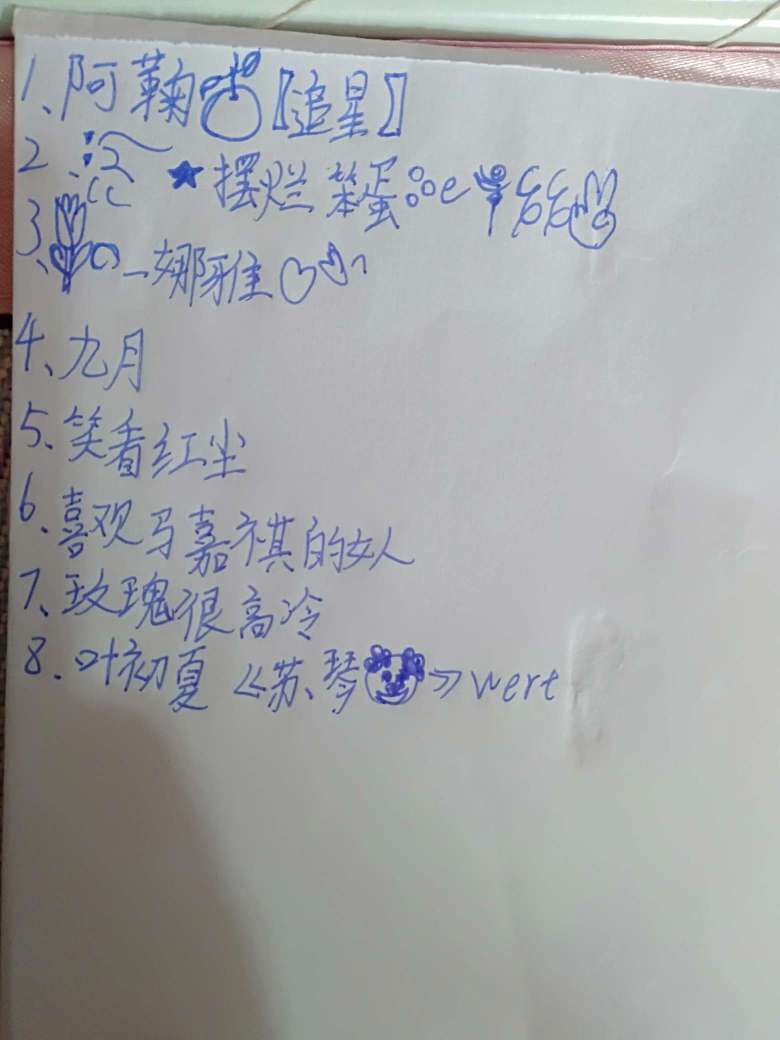 1、阿鞠【追星】
2、 ★摆烂笨蛋
3、 -娜雅
4、九月
5、笑看红尘
6、喜观马嘉祺的女人
7、玫瑰很高冷
8、叶初夏《苏、琴》wert